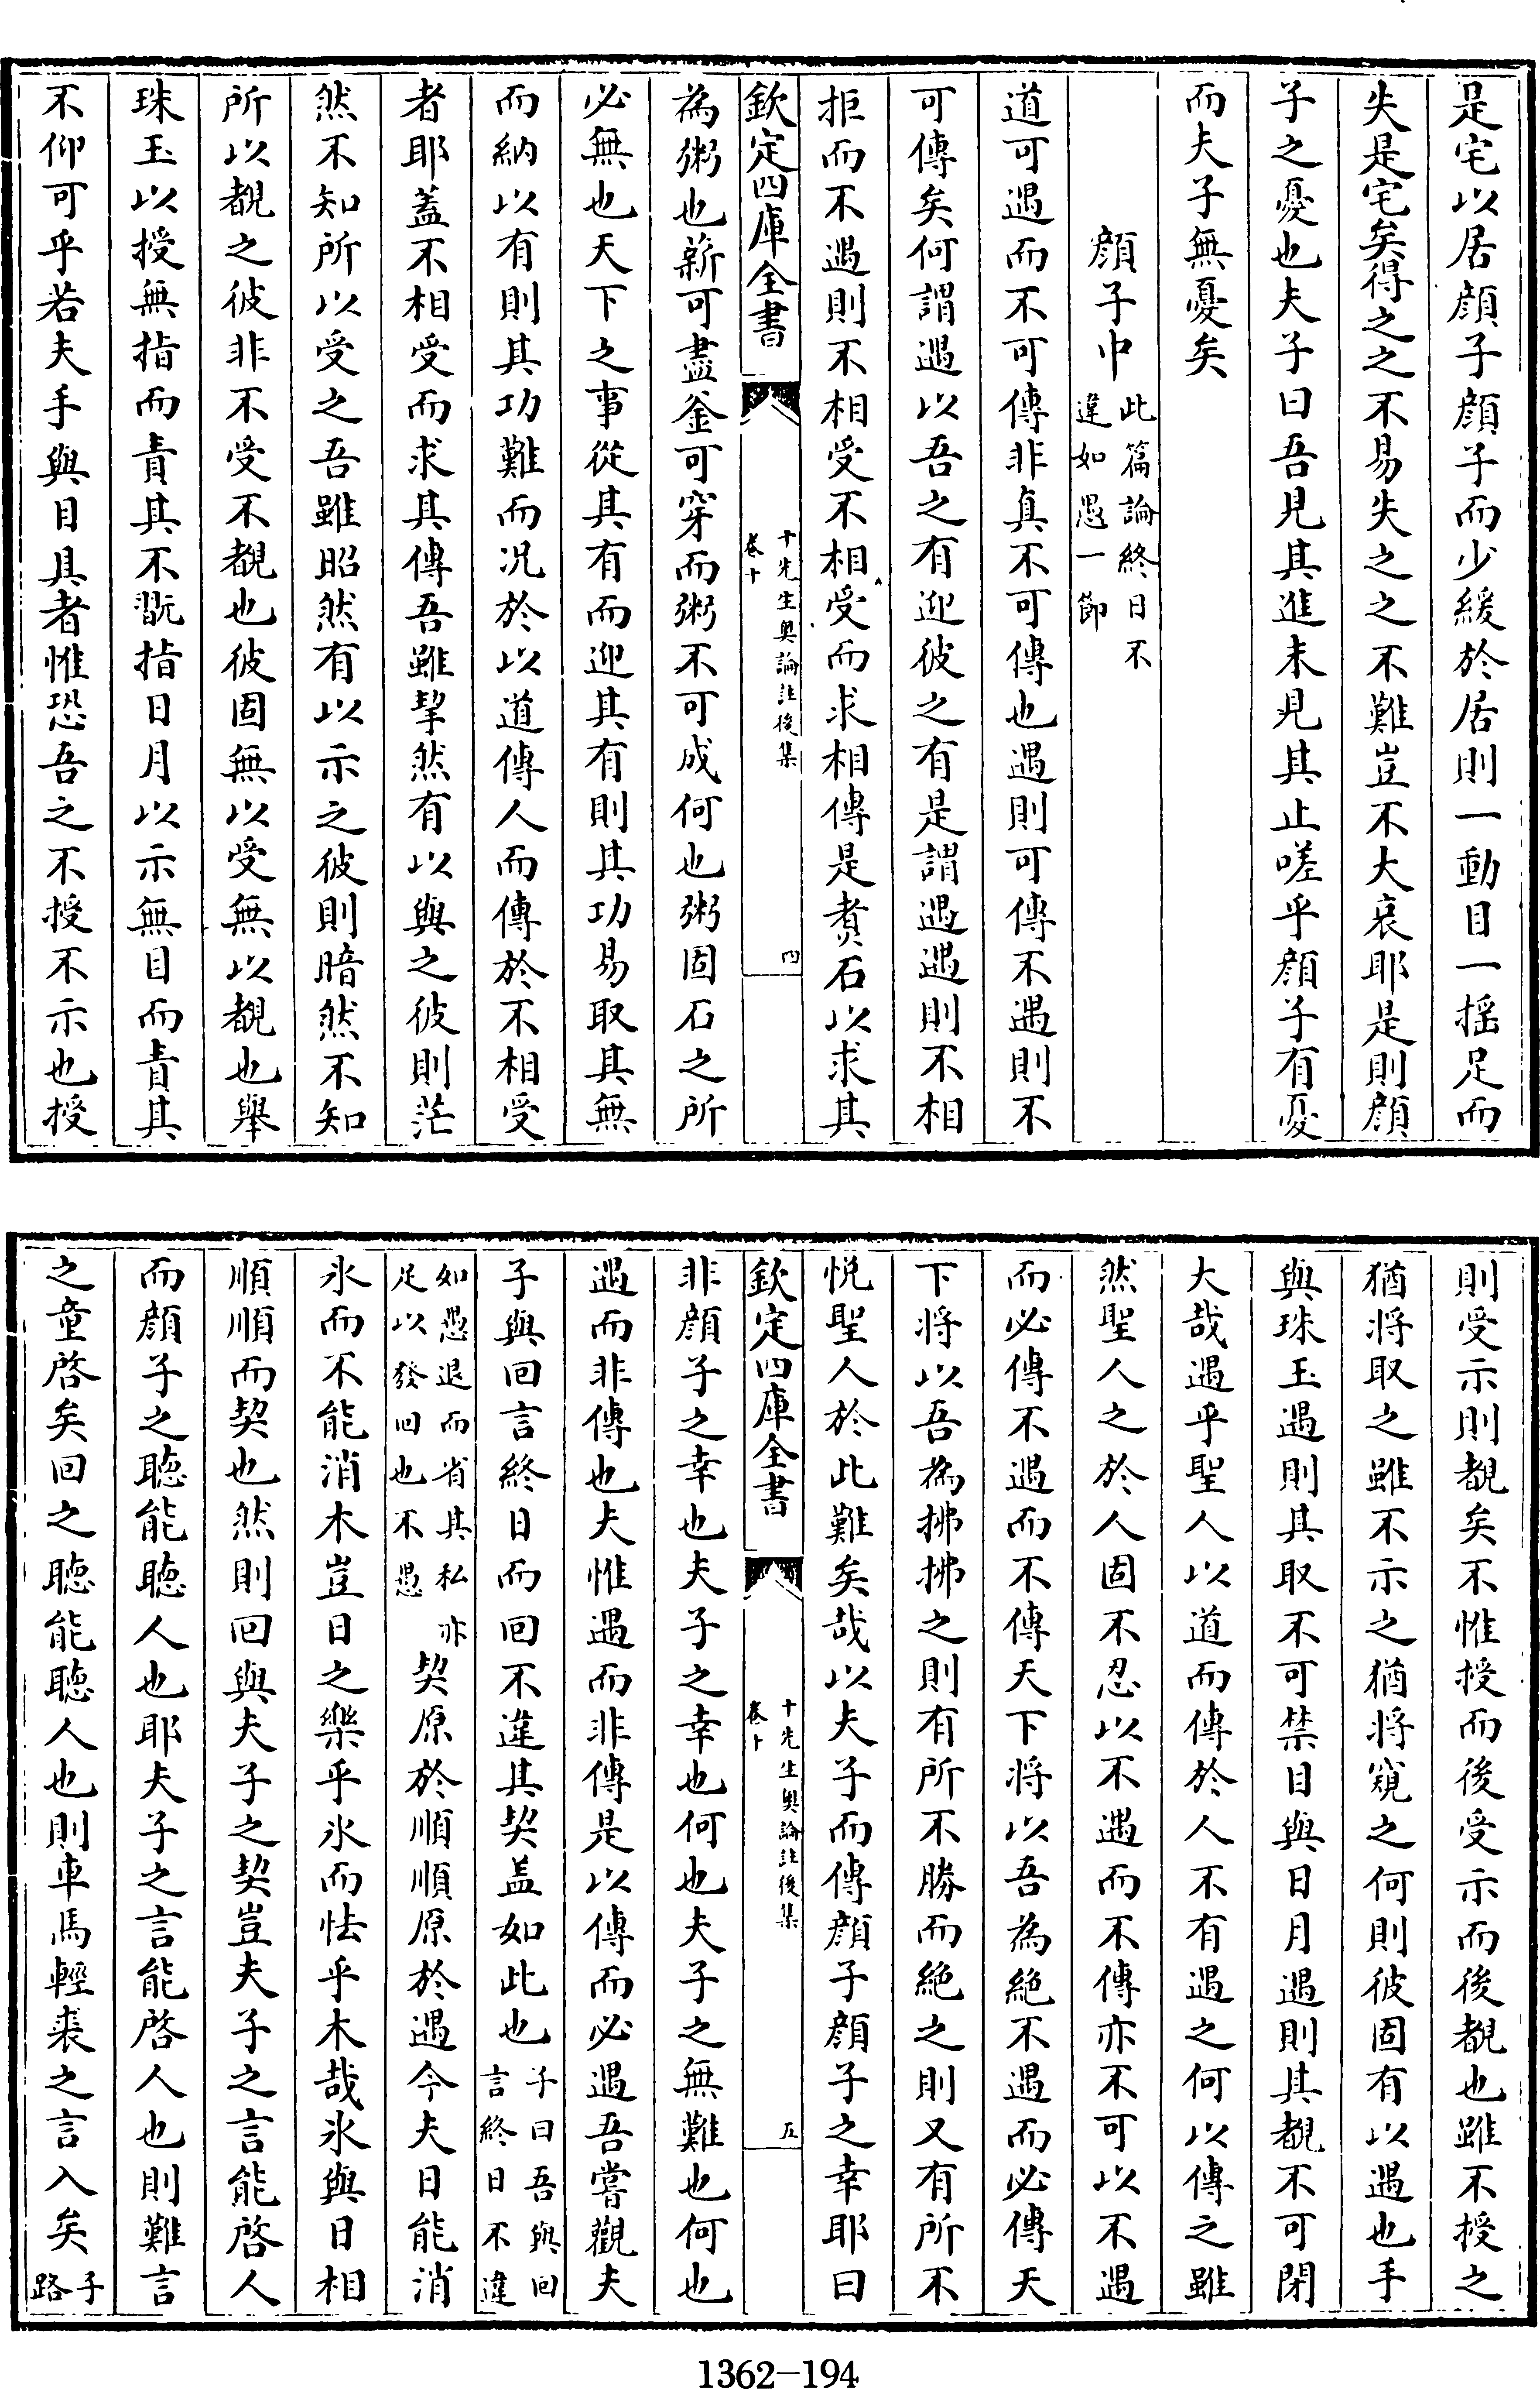 是宅以居顔子顔子而少緩於居則一動目一揺足而
失是宅矣得之之不易失之之不難豈不大哀耶是則顔
子之憂也夫子曰吾見其進未見其止嗟乎顔子有憂
而夫子無憂矣
顔子中
此篇論終日不
違如愚一節
道可遇而不可傳非真不可傳也遇則可傳不遇則不
可傳矣何謂遇以吾之有迎彼之有是謂遇遇則不相
拒而不遇則不相受不相受而求相傳是煑石以求其
欽定四庫全書
十先生奥論註後集
卷十
四
為粥也薪可盡釜可穿而粥不可成何也粥固石之所
必無也天下之事從其有而迎其有則其功易取其無
而納以有則其功難而况於以道傳人而傳於不相受
者耶蓋不相受而求其傳吾雖挈然有以與之彼則茫
然不知所以受之吾雖昭然有以示之彼則暗然不知
所以覩之彼非不受不覩也彼固無以受無以覩也舉
珠玉以授無指而責其不翫指日月以示無目而責其
不仰可乎若夫手與目具者惟恐吾之不授不示也授
則受示則覩矣不惟授而後受示而後覩也雖不授之
猶將取之雖不示之猶將窺之何則彼固有以遇也手
與珠玉遇則其取不可禁目與日月遇則其覩不可閉
大哉遇乎聖人以道而傳於人不有遇之何以傳之雖
然聖人之於人固不忍以不遇而不傳亦不可以不遇
而必傳不遇而不傳天下將以吾為絶不遇而必傳天
下將以吾為拂拂之則有所不勝而絶之則又有所不
悦聖人於此難矣哉以夫子而傳顔子顔子之幸耶曰
欽定四庫全書
十先生奥論註後集
卷十
五
非顔子之幸也夫子之幸也何也夫子之無難也何也
遇而非傳也夫惟遇而非傳是以傳而必遇吾嘗觀夫
子與回言終日而回不違其契盖如此也
子曰吾與回
言終日不違
如愚退而省其私亦
足以發回也不愚
契原於順順原於遇今夫日能消
氷而不能消木豈日之樂乎氷而怯乎木哉氷與日相
順順而契也然則回與夫子之契豈夫子之言能啓人
而顔子之聽能聽人也耶夫子之言能啓人也則難言
之童啓矣回之聽能聽人也則車馬輕裘之言入矣
子
路
1362-194